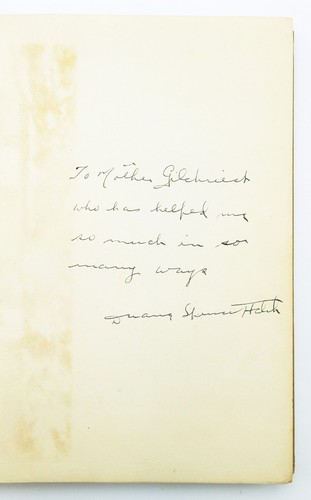 To Mother Gilchriest
who has helped me
so much in so
many ways
Duane Spencer Hatch